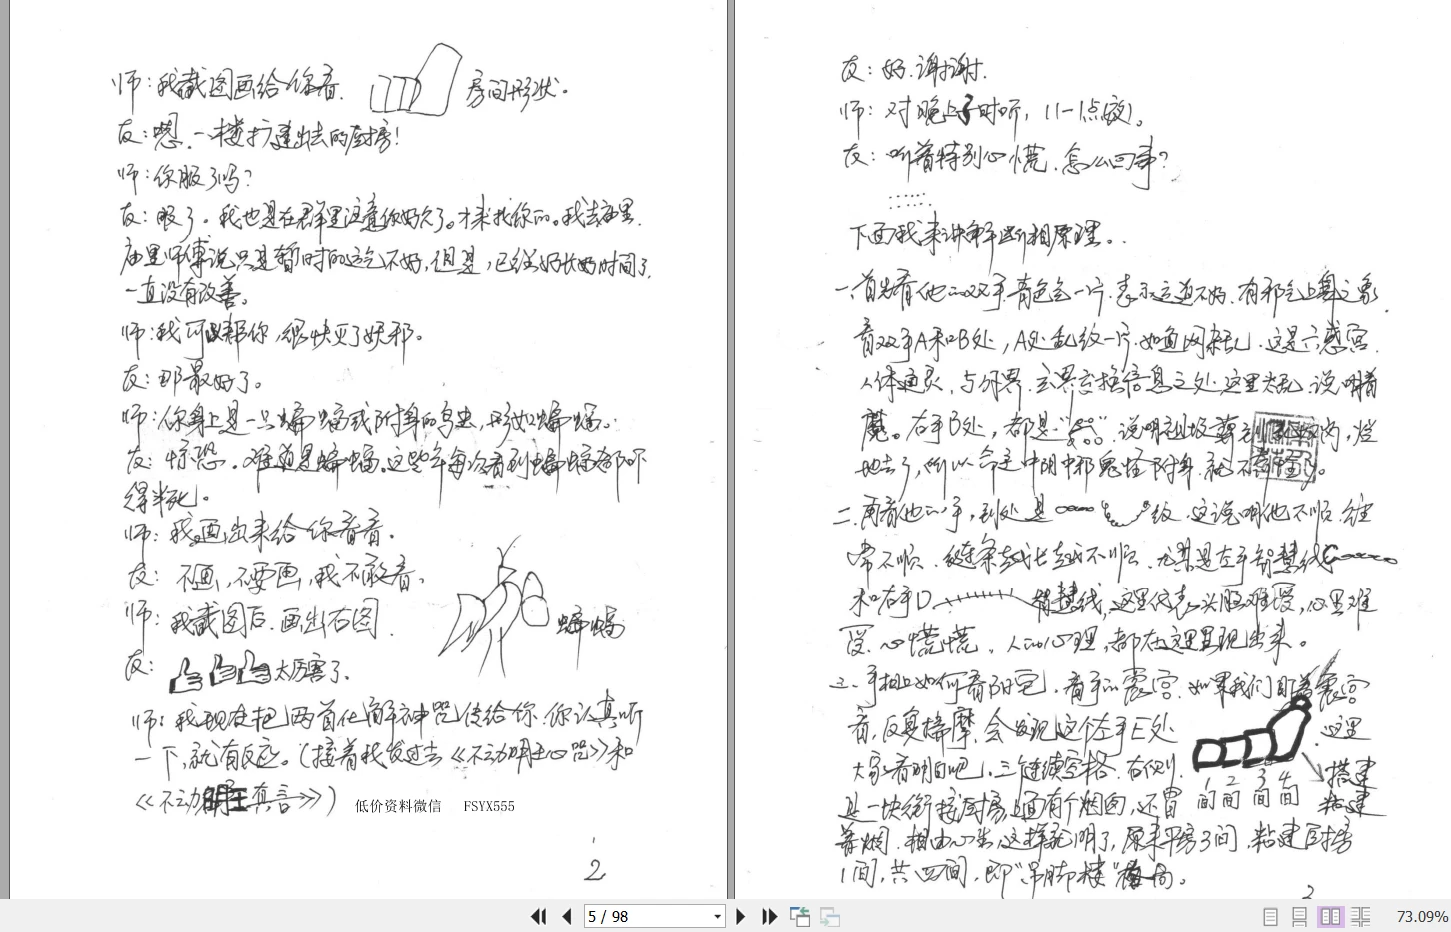 师：我截图画给你看. 房间形状。
友：嗯、一楼扩建出去的厨房！
师：你服了吗？
友：服了。我也是在群里注意你好久了。才来找你的。我去庙里.
庙里师傅说只是暂时的运气不好，但是，已经好长好时间了.
一直没有改善。
师：我可以帮你，很快灭了妖邪。
友：那最好了。
师：你身上是一只蝙蝠或附身的鸟虫，形如蝙蝠。
友：惊恐。难道是蝙蝠，这些年每次看到蝙蝠都吓
得半死。
师：我画出来给你看看.
友：不画，不要画，我不敢看。
师：我截图后.画出右图.
蝙蝠
友： 太厉害了.
师：我现在把两首化解神咒传给你.你认真听
一下，就有反应。（接着我发过去《不动明王心咒》和
《不动明王真言》）
低价资料微信 FSYX555
2
友：好.谢谢.
师：对晚上子时听，11-1点效）.
友：听着特别心慌.怎么回事？
下面我来讲解断相原理。
一、首先看他的双手.青色色一片.表示运道不好.有邪气上身之象.
看双手A和B处，A处乱纹一片.如鱼网杂乱.这是六感宫.
人体通灵，与外界.玄界交换信息之处.这里太乱.说明着
魔。右手B处，都是“ ”.说明祖坟 内，烂
地去了，所以命主中阴中邪鬼怪附身.就不奇怪了。
二.再看他的手，到处是 纹.这说明他不顺.经
常不顺.链条越长越不顺.尤其是左手智慧线
和右手D 智慧线，这里代表头脑难受，心里难
受.心慌慌.人的心理，都在这里显现出来。
三.手相上如何看阳宅.看手的震宫.如果我们盯着震宫
看，反复揣摩，会发现这个左手E处 这里
大家看明白吧，三个连续空格.右侧. 搭建
1间 2间 3间 4间 粘建
是一块衔接厨房，上面有个烟囱，还冒
着烟.相由心生，这样就明了，原来平房3间，粘建厨房
1间，共四间，即“吊脚楼”格局。
3
5 / 98
73.09%